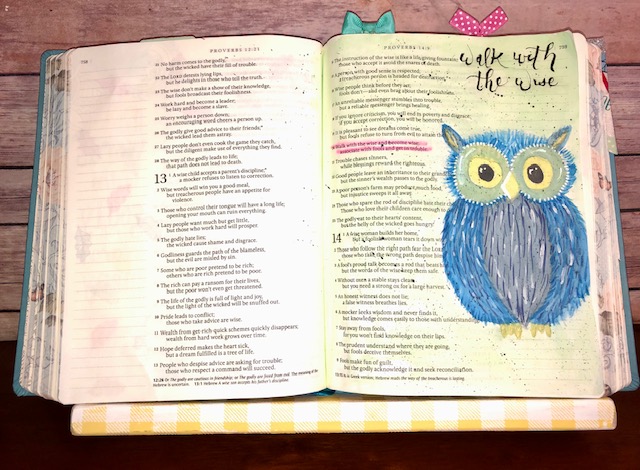 PROVERBS 12:21
758
21 No harm comes to the godly,
but the wicked have their fill of trouble.
22 The LORD detests lying lips,
but he delights in those who tell the truth.
23 The wise don't make a show of their knowledge,
but fools broadcast their foolishness.
24 Work hard and become a leader;
be lazy and become a slave.
25 Worry weighs a person down;
an encouraging word cheers a person up.
26 The godly give good advice to their friends;
the wicked lead them astray.
27 Lazy people don't even cook the game they catch,
but the diligent make use of everything they find.
28 The way of the godly leads to life;
that path does not lead to death.
13 1 A wise child accepts a parent's discipline;
a mocker refuses to listen to correction.
2 Wise words will win you a good meal,
but treacherous people have an appetite for
violence.
3 Those who control their tongue will have a long life;
opening your mouth can ruin everything.
4 Lazy people want much but get little,
but those who work hard will prosper.
5 The godly hate lies;
the wicked cause shame and disgrace.
6 Godliness guards the path of the blameless,
but the evil are misled by sin.
7 Some who are poor pretend to be rich;
others who are rich pretend to be poor.
8 The rich can pay a ransom for their lives,
but the poor won't even get threatened.
9 The life of the godly is full of light and joy,
but the light of the wicked will be snuffed out.
10 Pride leads to conflict;
those who take advice are wise.
11 Wealth from get-rich-quick schemes quickly disappears;
wealth from hard work grows over time.
12 Hope deferred makes the heart sick,
but a dream fulfilled is a tree of life.
13 People who despise advice are asking for trouble;
those who respect a command will succeed.
12:26 Or The godly are cautious in friendship; or The godly are freed from evil. The meaning of the
Hebrew is uncertain. 13:1 Hebrew A wise son accepts his father's discipline.
PROVERBS 14:9
759
walk with
the wise
14 The instruction of the wise is like a life-giving fountain;
those who accept it avoid the snares of death.
15 A person with good sense is respected;
a treacherous person is headed for destruction.
16 Wise people think before they act;
fools don't—and even brag about their foolishness.
17 An unreliable messenger stumbles into trouble,
but a reliable messenger brings healing.
18 If you ignore criticism, you will end in poverty and disgrace;
if you accept correction, you will be honored.
19 It is pleasant to see dreams come true,
but fools refuse to turn from evil to attain
20 Walk with the wise and become wise;
associate with fools and get in trouble.
21 Trouble chases sinners,
while blessings reward the righteous.
22 Good people leave an inheritance to their
but the sinner's wealth passes to the godly.
23 A poor person's farm may produce much food,
but injustice sweeps it all away.
24 Those who spare the rod of discipline hate their
Those who love their children care enough to
25 The godly eat to their hearts' content,
but the belly of the wicked goes hungry.
14 1 A wise woman builds her home,
but a foolish woman tears it down
2 Those who follow the right path fear the
those who take the wrong path despise him
3 A fool's proud talk becomes a rod that beats
but the words of the wise keep them safe.
4 Without oxen a stable stays clean,
but you need a strong ox for a large
5 An honest witness does not lie;
a false witness breathes lies.
6 A mocker seeks wisdom and never finds it,
but knowledge comes easily to those with
7 Stay away from fools,
for you won't find knowledge on their lips.
8 The prudent understand where they are going,
but fools deceive themselves.
9 Fools make fun of guilt,
but the godly acknowledge it and seek reconciliation.